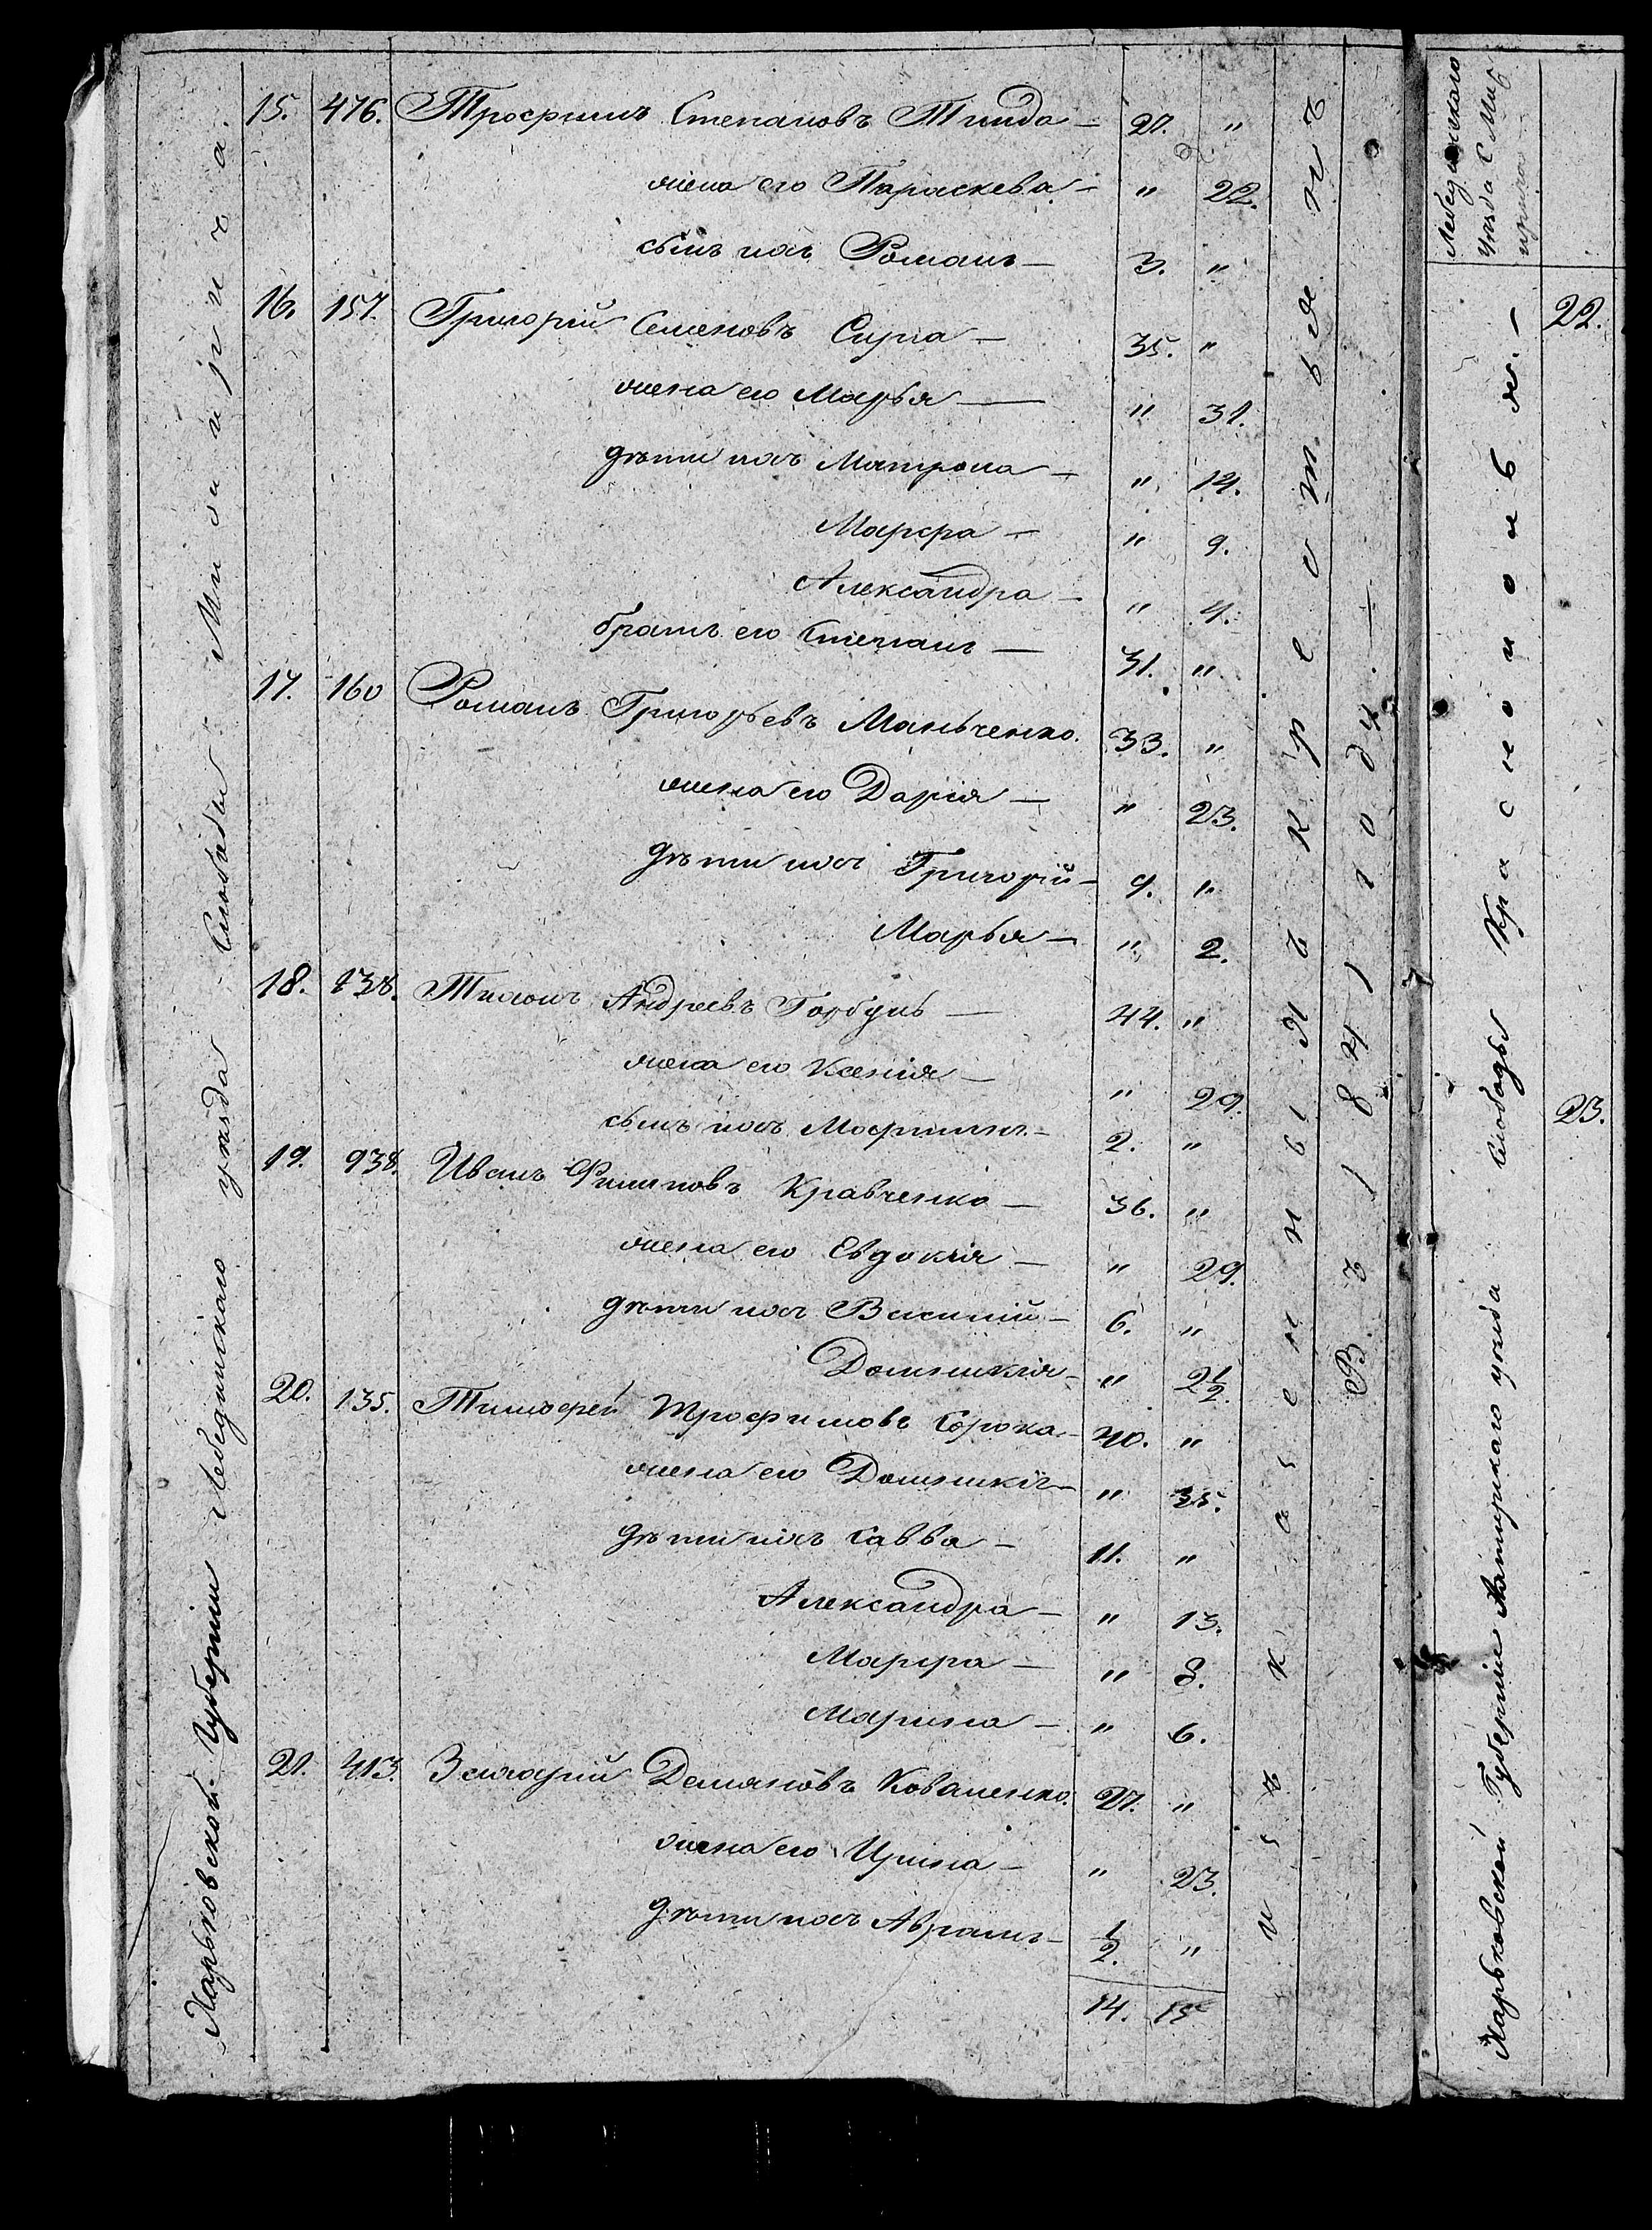 Харьковской Губерніи Лебединскаго уезда Слободы
15. 476. Трофимъ Степановъ Тинда — 27. "
жена его Параскева — " 22.
сынъ ихъ Романъ — 3. "
16. 157. Григорій Семеновъ Сира — 35. "
жена его Марья — " 31.
дѣти ихъ Матрона — " 14.
Марфа — " 9.
Александра — " 4.
братъ его Степанъ — 31. "
17. 160 Романъ Григорьевъ Маньченко. 33. "
жена его Дарія — " 23.
дѣти ихъ Григорій — 4. "
Марья — " 2.
18. 138. Тихонъ Андреевъ Горбунъ — 44. "
жена его Ксенія — " 29.
сынъ ихъ — 2. "
19. 938. Иванъ Филиповъ Кравченко — 36. "
жена его Евдокія — " 29.
дѣти ихъ Василій — 6. "
Домникія — " 2½.
20. 135. Тимофей Трофимовъ Сорока — 40. "
жена его Домникія — " 35.
дѣти ихъ Савва — 11. "
Александра — " 13.
Марфа — " 8.
Марина — " 6.
21. 413. Григорій Демяновъ Коваленко. 27. "
жена его Ирина — " 23.
дѣти ихъ Аврамъ — ½. "
14. 15
Кавказской Области въ Крѣпость
Въ 1841 году. —
Лебединскаго
Уезда С
Харьковской Губерніи уезда Слободы
22.
23.